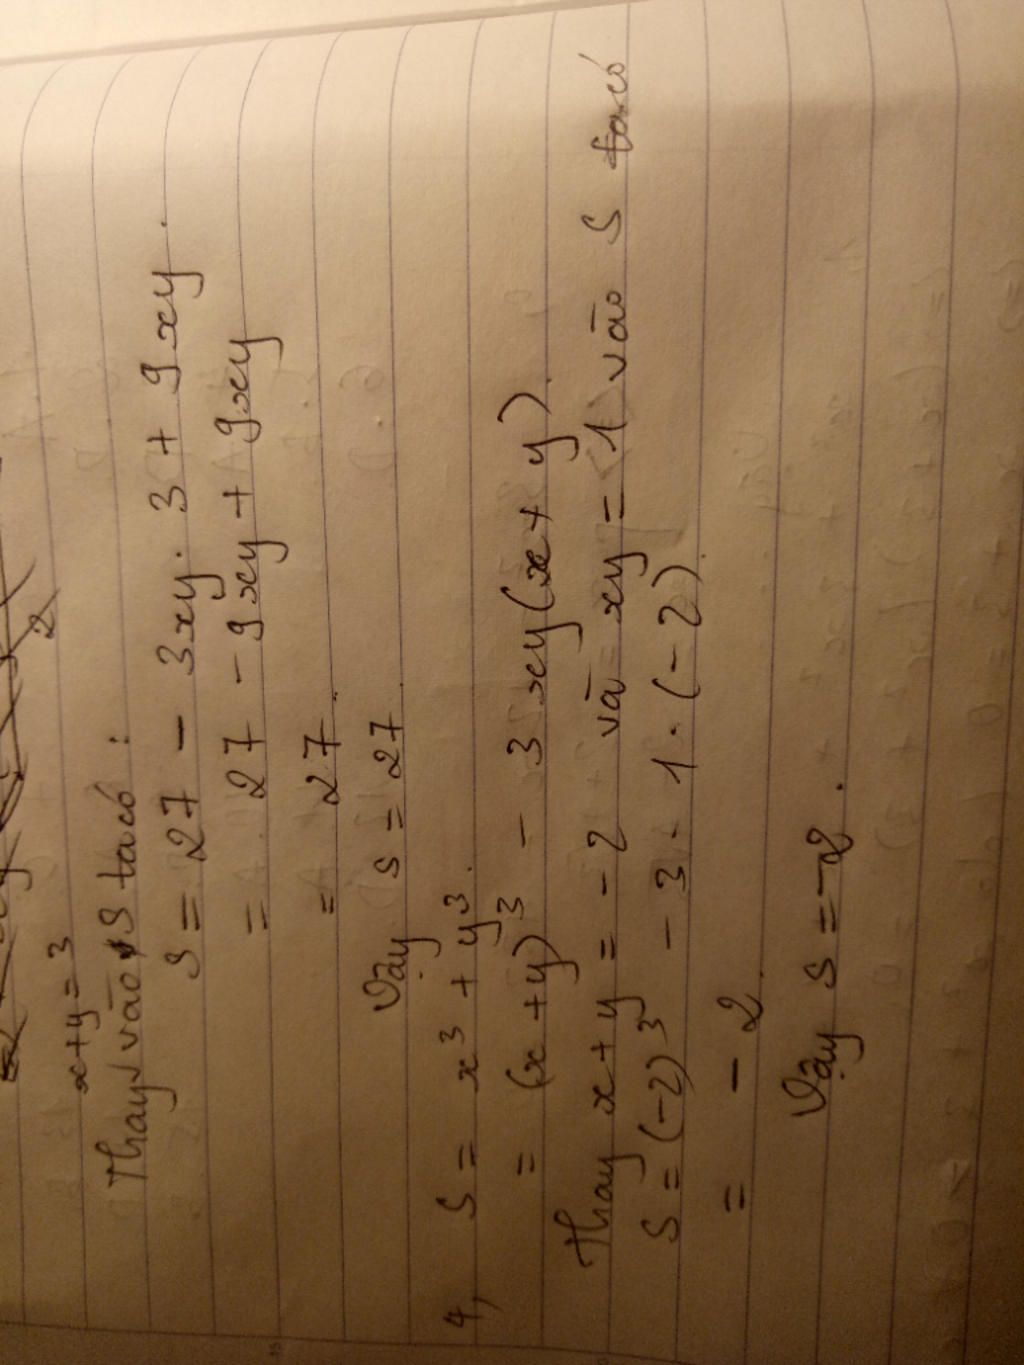 x+y=3
Thay vào S ta có :
S = 27 - 3xy . 3 + 9xy .
= 27 - 9xy + 9xy
= 27 .
Vậy S = 27 .
4, S = x³ + y³ .
= (x + y)³ - 3xy(x + y) .
Thay x+y = -2 và xy = 1 vào S ta có
S = (-2)³ - 3 . 1 . (-2) .
= - 2 .
Vậy S = -2 .